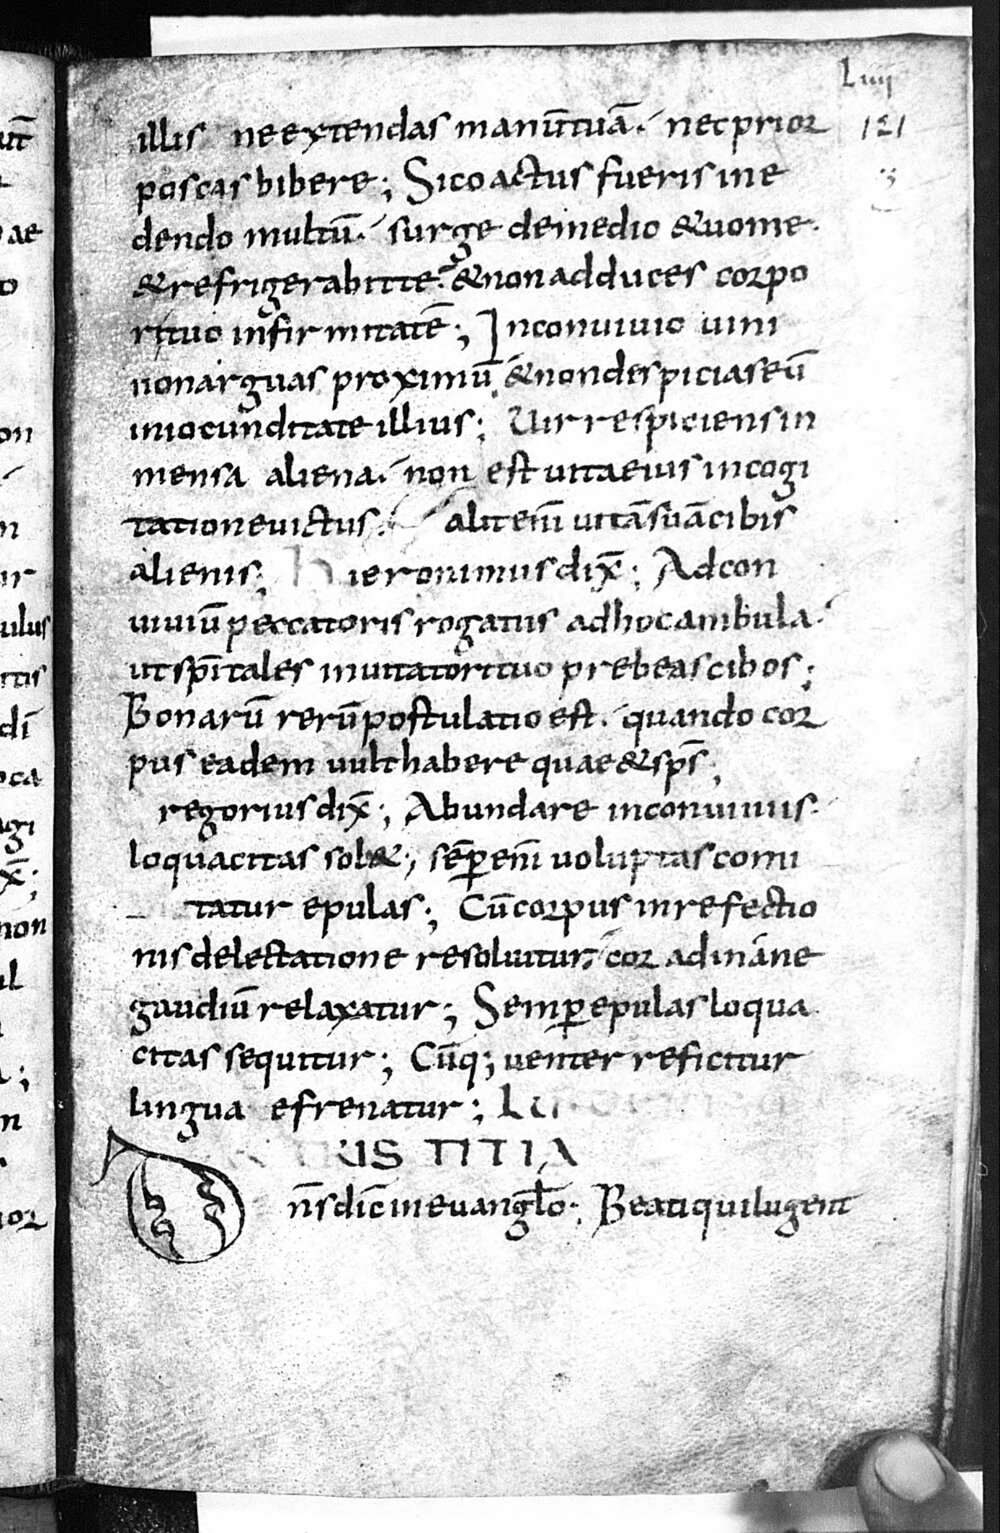 Liiii
illis ne extendas manū tuā. nec prior
121
poscas bibere; Si coactus fueris in e
dendo multū. surge de medio & uome.
& refrigerabit te. & non adduces corpo
ri tuo infirmitatē; In conuiuio uini
non arguas proximū & non despicias eū
in iocunditate illius; Uir respiciens in
mensa aliena. non est uita eius in cogi
tatione uictus. alit enī uitā suā cibis
alienis; hieronimus dix̄; Ad con
uiuiū peccatoris rogatus ad hoc ambula.
ut sp̄itales inuitatori tuo prebeas cibos;
Bonarū rerū postulatio est. quando cor
pus eadem uult habere quae & sp̄s;
regorius dix̄; Abundare in conuiuiis.
loquacitas sol&; sēp enī uoluptas comi
tatur epulas; Cū corpus in refectio
nis delectatione resoluitur; cor ad ināne
gaudiū relaxatur; Semp epulas loqua
citas sequitur; Cūq; uenter reficitur
lingua efrenatur;
TRISTITIA
Dn̄s dic̄ in euanglo; Beati qui lugent